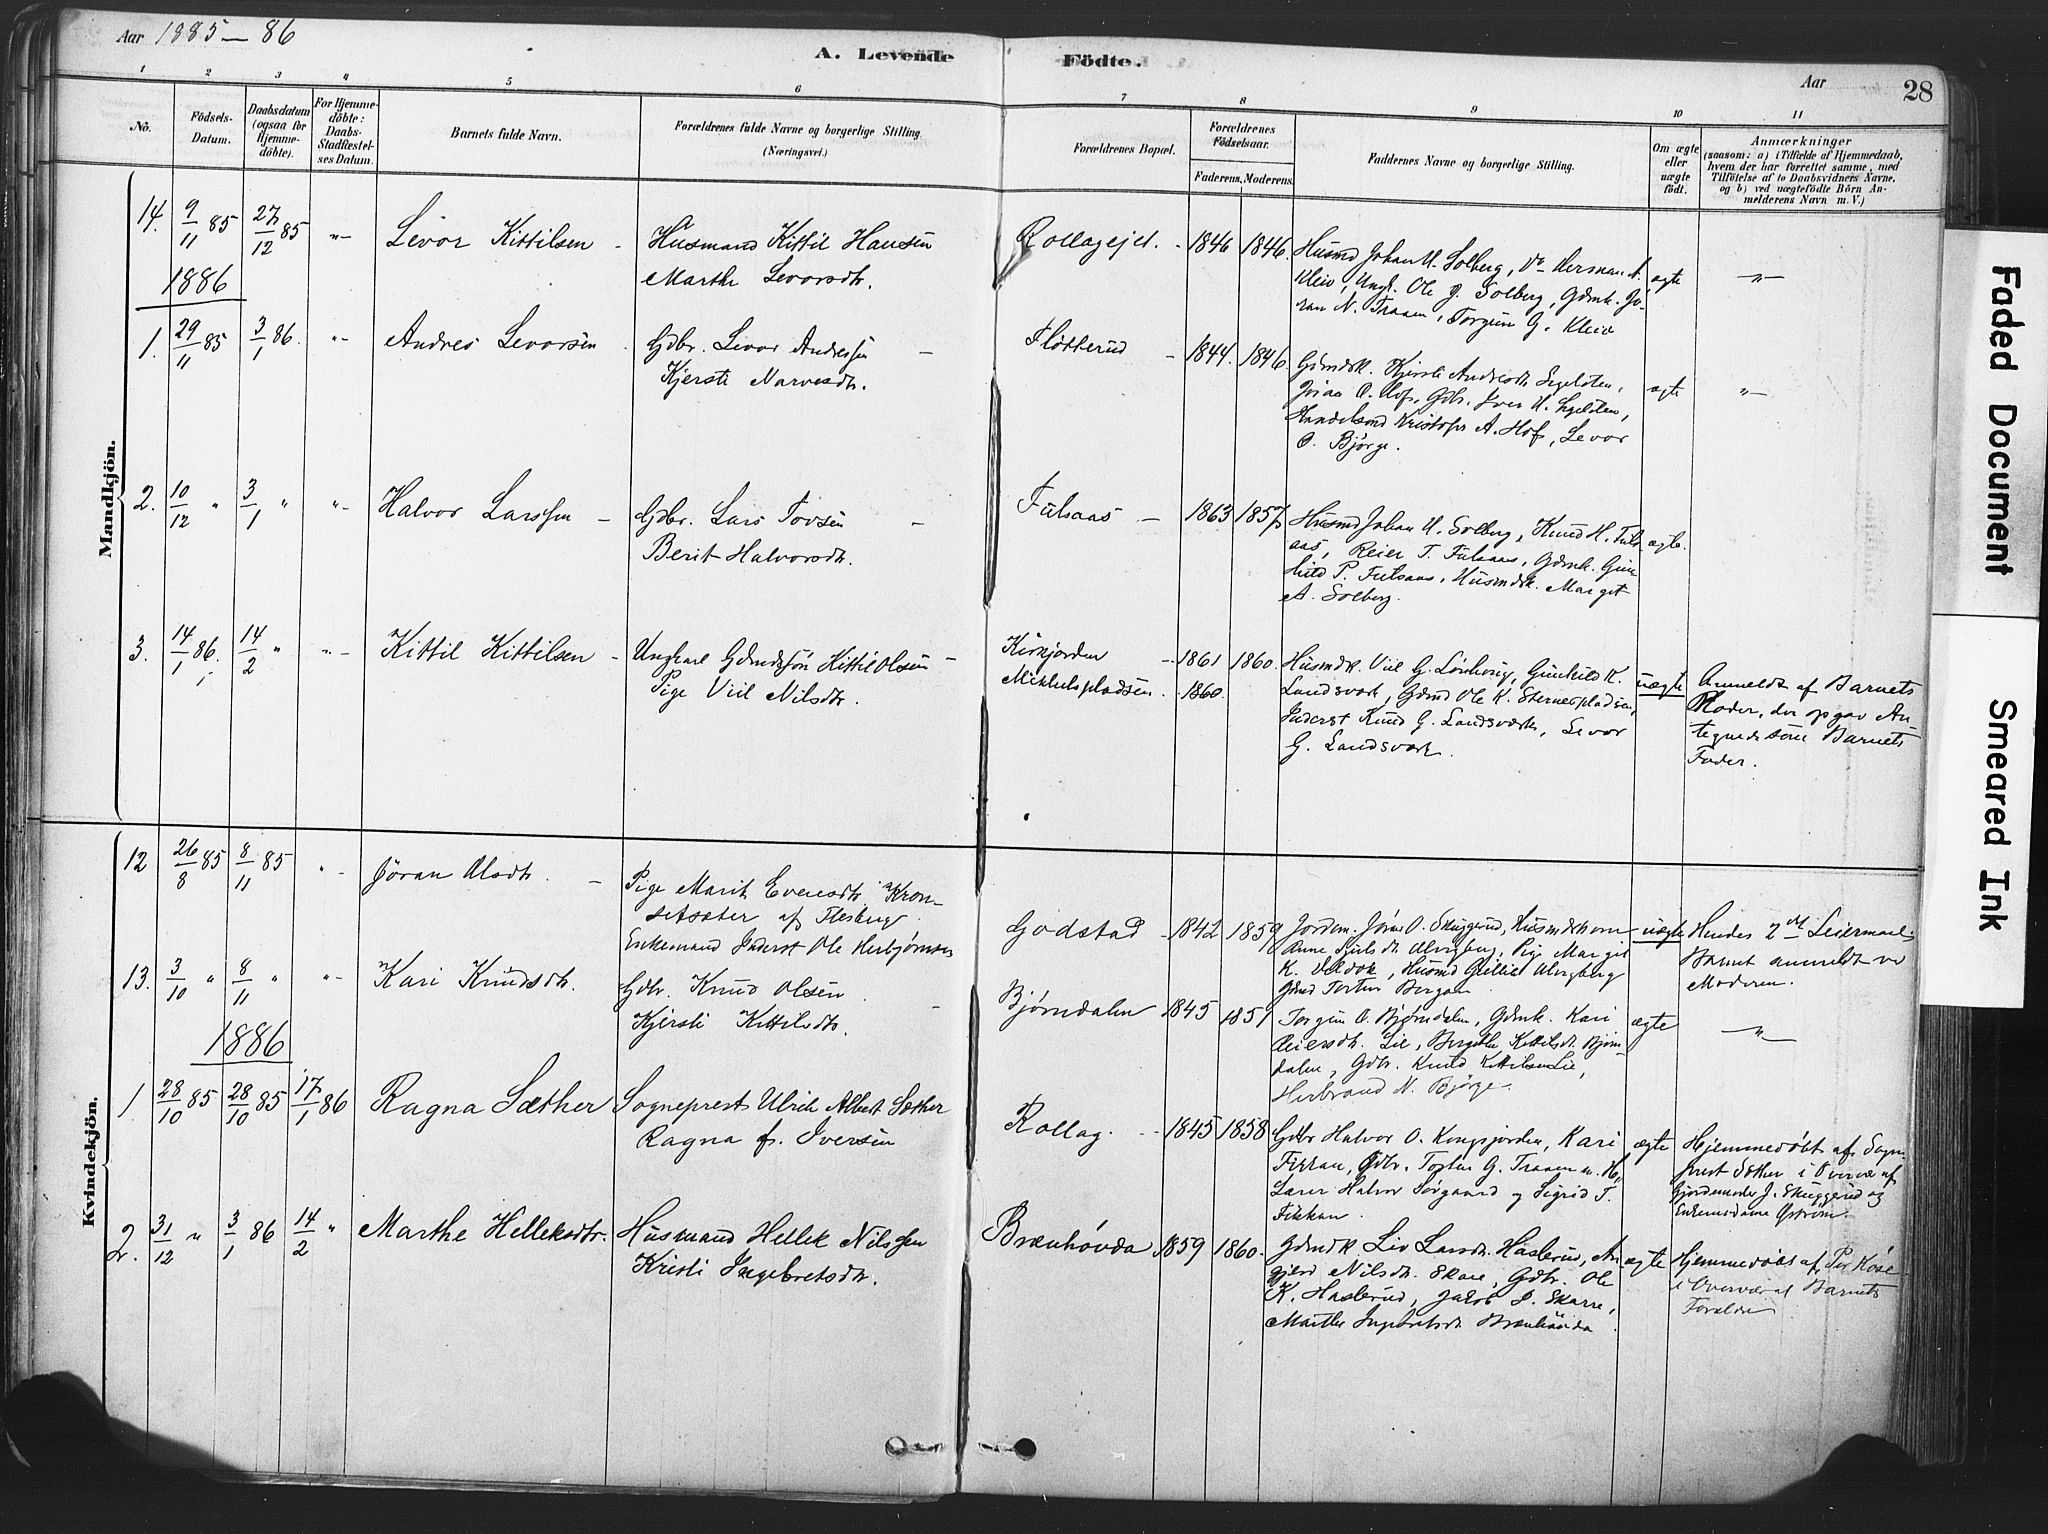 Aar 1885-86
A. Levende Födte.
Aar
28
1 2 3 4 5 6 7 8 9 10 11
No.
Födsels-Datum.
Daabsdatum (ogsaa for Hjemmedöbte).
For Hjemmedöbte: Daabs-Stadfæstelses Datum.
Barnets fulde Navn.
Forældrenes fulde Navne og borgerlige Stilling.
(Næringsvei.)
Forældrenes Bopæl.
Forældrenes Födselsaar.
Faderens. Moderens.
Faddernes Navne og borgerlige Stilling.
Om ægte eller uægte födt.
Anmærkninger
(saasom: a) i Tilfælde af Hjemmedaab,
hvem der har forrettet samme, med
Tilföielse af to Daabsvidners Navne.
og b) ved uægtefödte Börn An-
melderens Navn m. V.)
Mandkjön.
14. 9/11 85 27/12 85 "- Levor Kittilsen - Husmand Kittil Hansen
Marthe Levorsdtr.
Rollagejet. - 1846 1846. Husmd Johan H. Solberg, Do Herman A.
Kleiv, Ungk. Ole J. Solberg, Gdmk. Jö-
ran N. Traaen, Torgun G. Kleiv
ægte -"-
1886
1. 29/11 85 3/1 86. "- Andres Levorsen Gdbr. Levor Andressen -
Kjersti Narvesdtr.
Fløtterud - 1844. 1846. Gdmdsk. Kjersti Andresdtr.
Jöran O. Hof, Gdbr. Iver
Handelsmd Kristofer A. Hof, Levor
O. Björge.
ægte "-
2. 10/12 " 3/1 " "- Halvor Larssen - Gdbr. Lars Tovsen -
Berit Halvorsdtr.
Fulsaas - 1863 1857 Husmd Johan H. Solberg, Knud H. Fuls-
aas, Reier T. Fulsaas, Gdmk. Gun-
hild P. Fulsaas, Husmdsk. Margit
A. Solberg.
ægte.
3. 14/1 86. 14/2 " "- Kittil Kittilsen - Ungkarl Gdmdssön Kittil Olsen -
Pige Viil Nilsdtr.
Kirkjorden - 1861 1860.
1860.
Husmdk. Viil G. Gunhild K.
Landsværk, Gdmd Ole K.
Inderst Knud G. Landsværk, Levor
G. Landsværk.
uægte
Anmeldt af Barnets
Moder, der opgav An-
tegnede som Barnets
Fader.
Kvindekjön.
12 26/8 85 8/11 85 "- Jöran Olsdtr. - Pige Marit Evensdtr. Kron-
setsæter af Flesberg
Enkemand Inderst Ole Herbjørnsen
Godstad - 1842 1859 Jordem. Jöran O. Skuggerud,
Pige Margit
K. Husmd
uægte Hendes 2det Leiermaal.
Barnet anmeldt ved
Moderen.
13. 3/10 " 8/11 " "- Kari Knudsdtr. Gdbr. Knud Olsen -
Kjersti Kittilsdtr.
Bjørndalen 1845 1851 Torgun O. Bjørndalen, Gdmk. Kari
Reiersdtr. Lie, Kittilsdtr. Bjørn-
dalen, Gdbr. Knud Kittilsen Lie,
Herbrand N. Björge.
ægte -"-
1886
1. 28/10 85 28/10 85 17/1 86 Ragna Sæther Sogneprest Ulrik Albert Sæther
Ragna f. Iversen
Rollag. - 1845 1858 Gdbr Halvor O. Kongsjorden, Kari
Fikkan, Gdbr. Torsten G. Traaen
Lærer Halvor Sörgaard og Sigrid T.
Fikkan.
ægte Hjemmedöbt af Sogne-
prest Sæther i Overvær af
Gjordemoder J. Skuggerud og
Enkemadame Østrøm.
2. 31/12 " 3/1 86 14/2 " Marthe Helleksdtr. Husmand Hellek Nilssen
Kristi Ingebretsdtr.
Brænhövda 1859 1860. Gdmdk. Liv Larsdtr. Haslerud, An-
gjerd Nilsdtr. Skare, Gdbr. Ole
K. Haslerud, Jakob P. Skarre,
Marthe Ingebretsdtr. Brænhövda
ægte Hjemmedöbt af Per
i Overvær af Barnets
Forældre
Faded Document
Smeared Ink